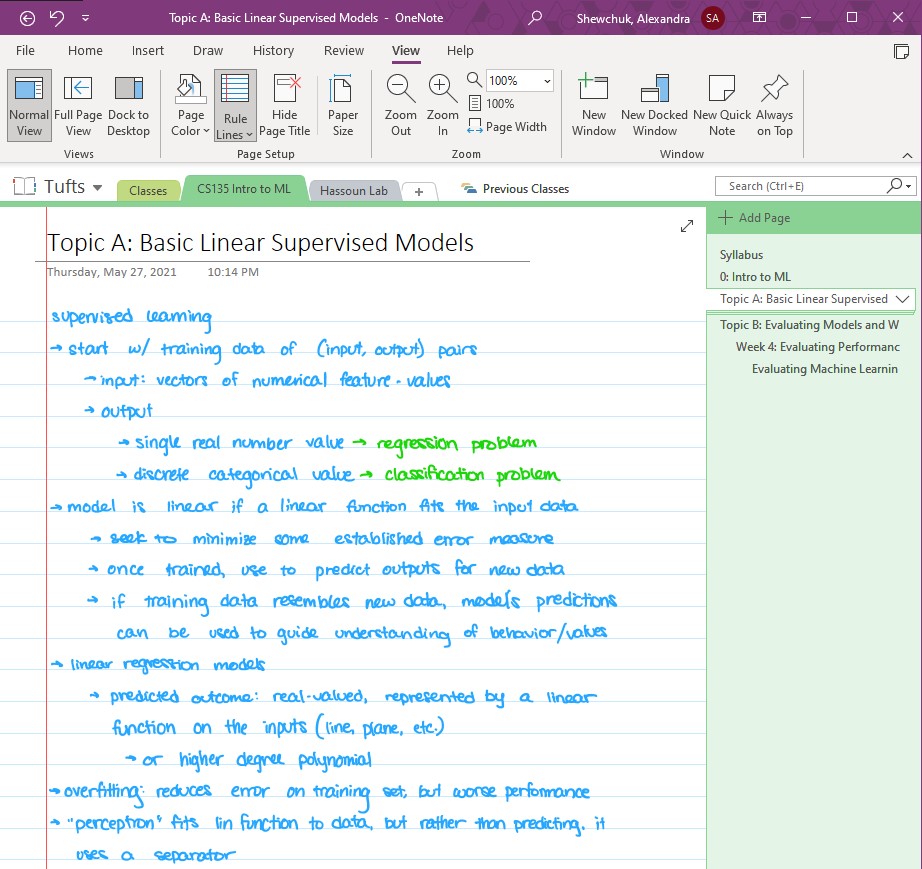 Topic A: Basic Linear Supervised Models - OneNote
Shewchuk, Alexandra SA
File Home Insert Draw History Review View Help
Normal View
Full Page View
Dock to Desktop
Views
Page Color
Rule Lines
Hide Page Title
Paper Size
Page Setup
Zoom Out
Zoom In
100%
100%
Page Width
Zoom
New Window
New Docked Window
New Quick Note
Always on Top
Window
Tufts
Classes
CS135 Intro to ML
Hassoun Lab
+
Previous Classes
Search (Ctrl+E)
Topic A: Basic Linear Supervised Models
Thursday, May 27, 2021 10:14 PM
supervised learning
→ start w/ training data of (input, output) pairs
→ input: vectors of numerical feature-values
→ output
→ single real number value → regression problem
→ discrete categorical value → classification problem
→ model is linear if a linear function fits the input data
→ seek to minimize some established error measure
→ once trained, use to predict outputs for new data
→ if training data resembles new data, model's predictions
can be used to guide understanding of behavior/values
→ linear regression models
→ predicted outcome: real-valued, represented by a linear
function on the inputs (line, plane, etc.)
→ or higher degree polynomial
→ overfitting: reduces error on training set, but worse performance
→ "perceptron" fits lin function to data, but rather than predicting, it
uses a separator
+ Add Page
Syllabus
0: Intro to ML
Topic A: Basic Linear Supervised
Topic B: Evaluating Models and W
Week 4: Evaluating Performanc
Evaluating Machine Learnin